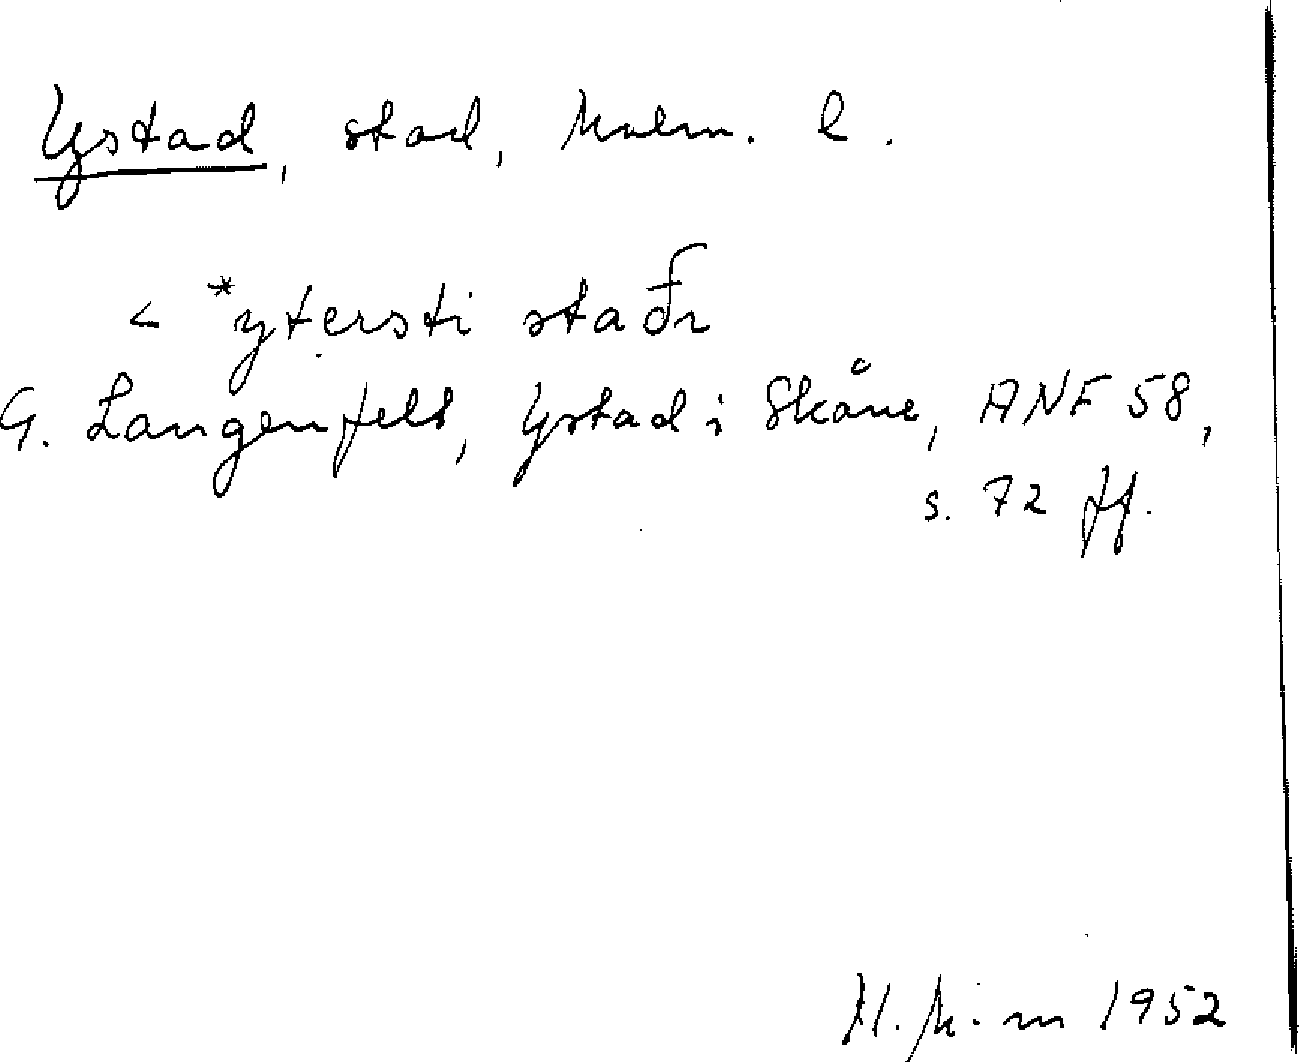 Ystad, stad, Malm. l.
< *ytersti staðr
G. Langenfelt, Ystad i Skåne, ANF 58,
s. 72 ff.
1952